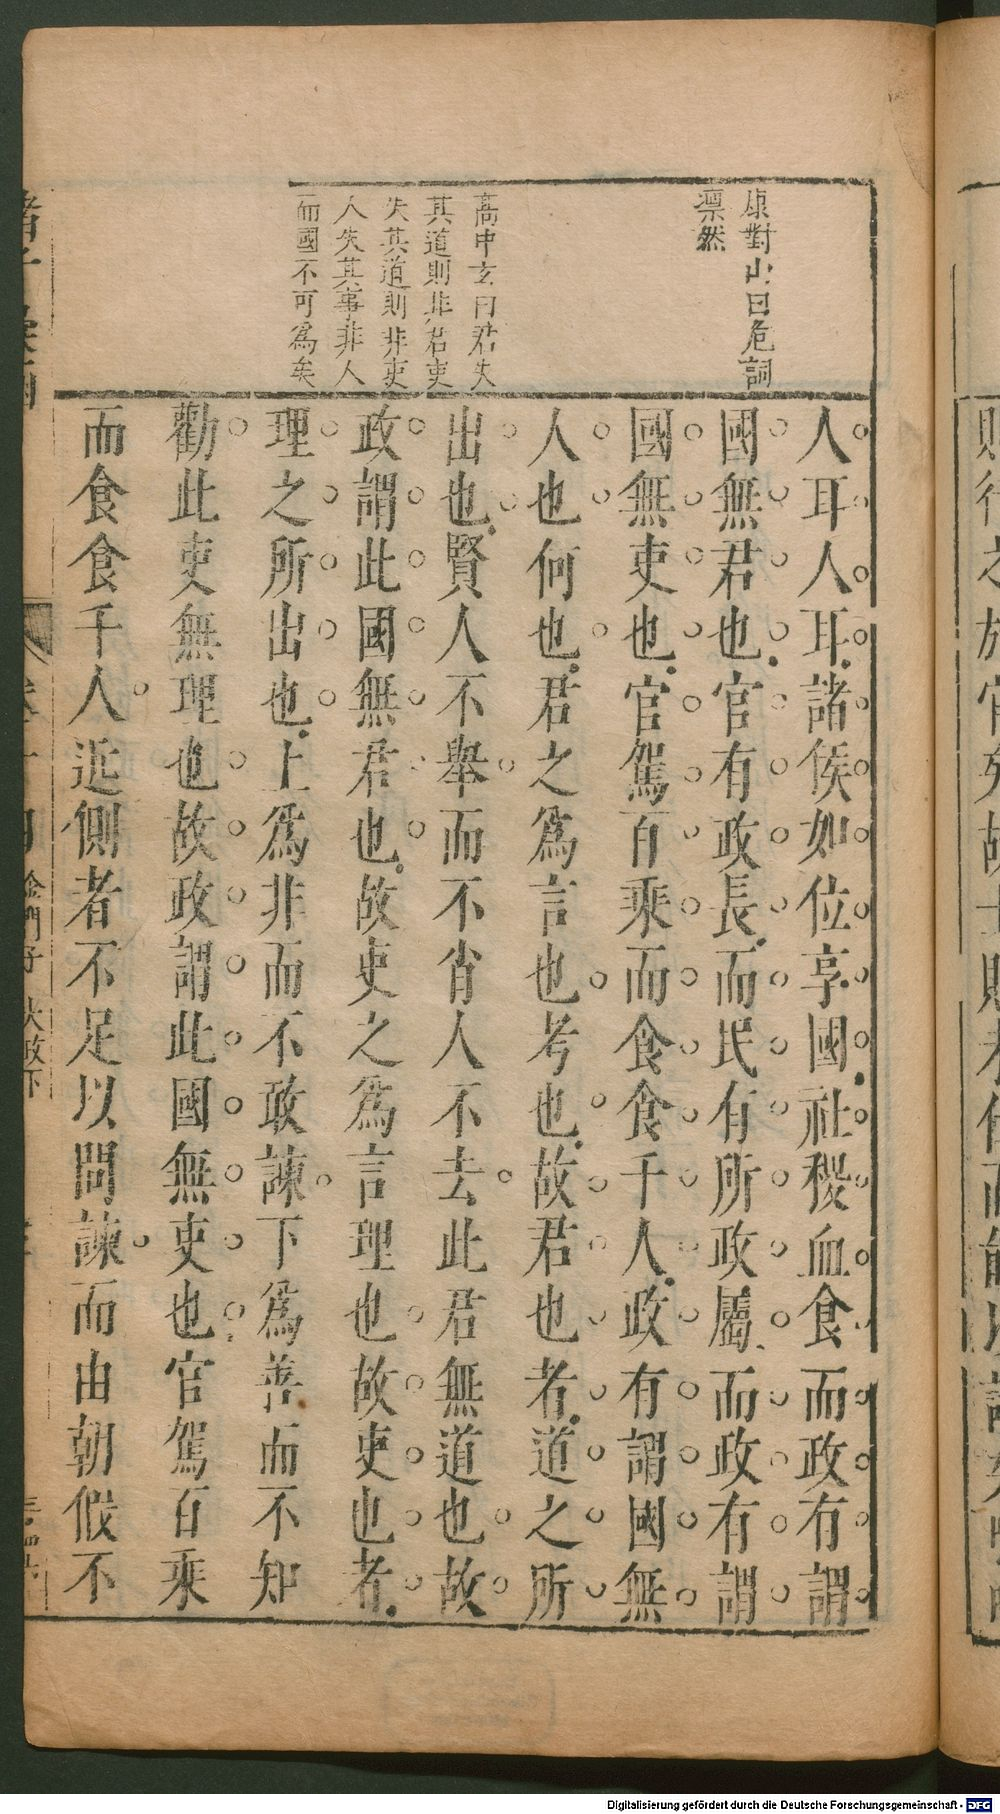 康對山曰危詞
凜然
高中玄曰君失
其道則非君吏
失其道則非吏
人失其事非人
而國不可為矣
人耳人耳諸侯如位享國社稷血食而政有謂
國無君也官有政長而民有所政屬而政有謂
國無吏也官駕百乘而食食千人政有謂國無
人也何也君之為言也考也故君也者道之所
出也賢人不舉而不肖人不去此君無道也故
政謂此國無君也故吏之為言理也故吏也者
理之所出也上為非而不敢諫下為善而不知
勸此吏無理也故政謂此國無吏也官駕百乘
而食食千人近側者不足以問諫而由朝假不
諸子彙函
金門子 大政下
Digitalisierung gefördert durch die Deutsche Forschungsgemeinschaft - DFG